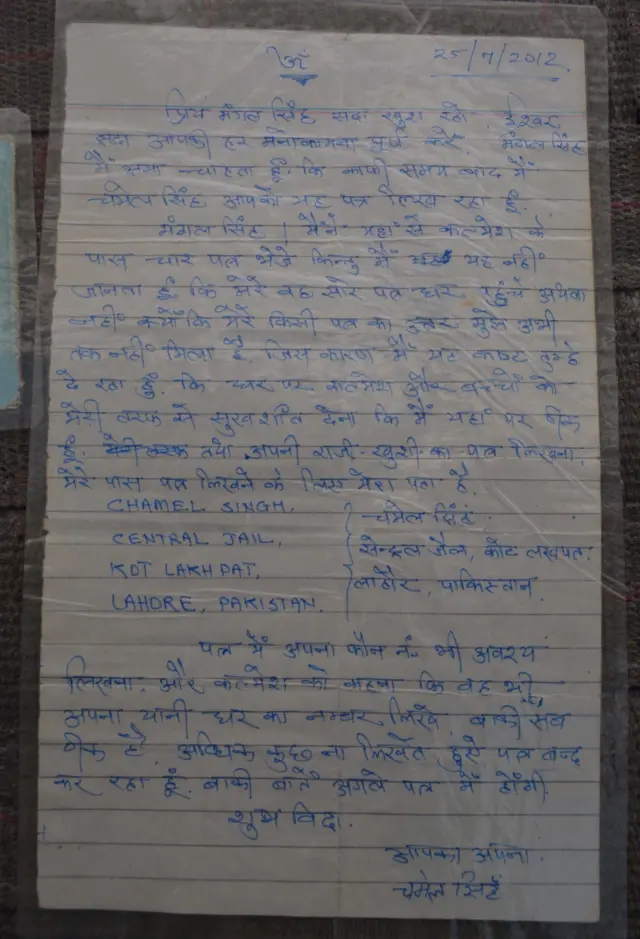 ॐ 25/7/2012.
प्रिय मंगल सिंह सदा खुश रहो. ईश्वर
सदा आपकी हर मनोकामना पुर्ण करें. मंगल सिंह
मैं क्षमा चाहता हूँ. कि काफी समय बाद मैं
चमेल सिंह आपको यह पत्र लिख रहा हूँ.
मंगल सिंह! मैंने यहाँ से कल्मेश के
पास चार पत्र भेजे किन्तु मैं यह नहीं
जानता हूँ. कि मेरे वह सारे पत्र घर पहुंचे अथवा
नहीं क्योंकि मेरे किसी पत्र का उत्तर मुझे अभी
तक नहीं मिला है. जिस कारण मैं यह कष्ट तुम्हे
दे रहा हूँ. कि घर पर कल्मेश और बच्चों को
मेरी तरफ से सुखशांत देना कि मैं यहाँ पर ठीक
हूँ. तथा अपनी राजी-खुशी का पत्र लिखना.
मेरे पास पत्र लिखने के लिए मेरा पता है.
CHAMEL SINGH, चमेल सिंह.
CENTRAL JAIL, सेन्ट्रल जैल, कोट लखपत.
KOT LAKHPAT, लाहौर, पाकिस्तान.
LAHORE, PAKISTAN.
पत्र में अपना फोन नं. भी अवश्य
लिखना. और कल्मेश को कहना कि वह भी
अपना यानी घर का नम्बर लिखे. बाकी सब
ठीक है. अधिक कुछ ना लिखते हुऐ पत्र बन्द
कर रहा हूँ. बाकी बातें अगले पत्र में होंगी.
शुभ विदा.
आपका अपना.
चमेल सिंह